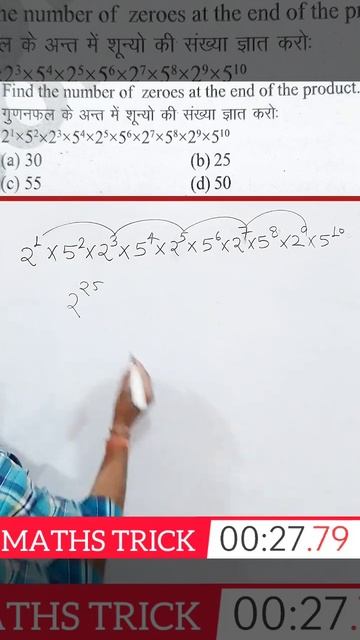 he number of zeroes at the end of the pr
ल के अन्त में शून्यो की संख्या ज्ञात करोः
2³×5⁴×2⁵×5⁶×2⁷×5⁸×2⁹×5¹⁰
Find the number of zeroes at the end of the product.
गुणनफल के अन्त में शून्यो की संख्या ज्ञात करोः
2¹×5²×2³×5⁴×2⁵×5⁶×2⁷×5⁸×2⁹×5¹⁰
(a) 30 (b) 25
(c) 55 (d) 50
2¹×5²×2³×5⁴×2⁵×5⁶×2⁷×5⁸×2⁹×5¹⁰
2²⁵
MATHS TRICK 00:27.79
THS TRICK 00:27.